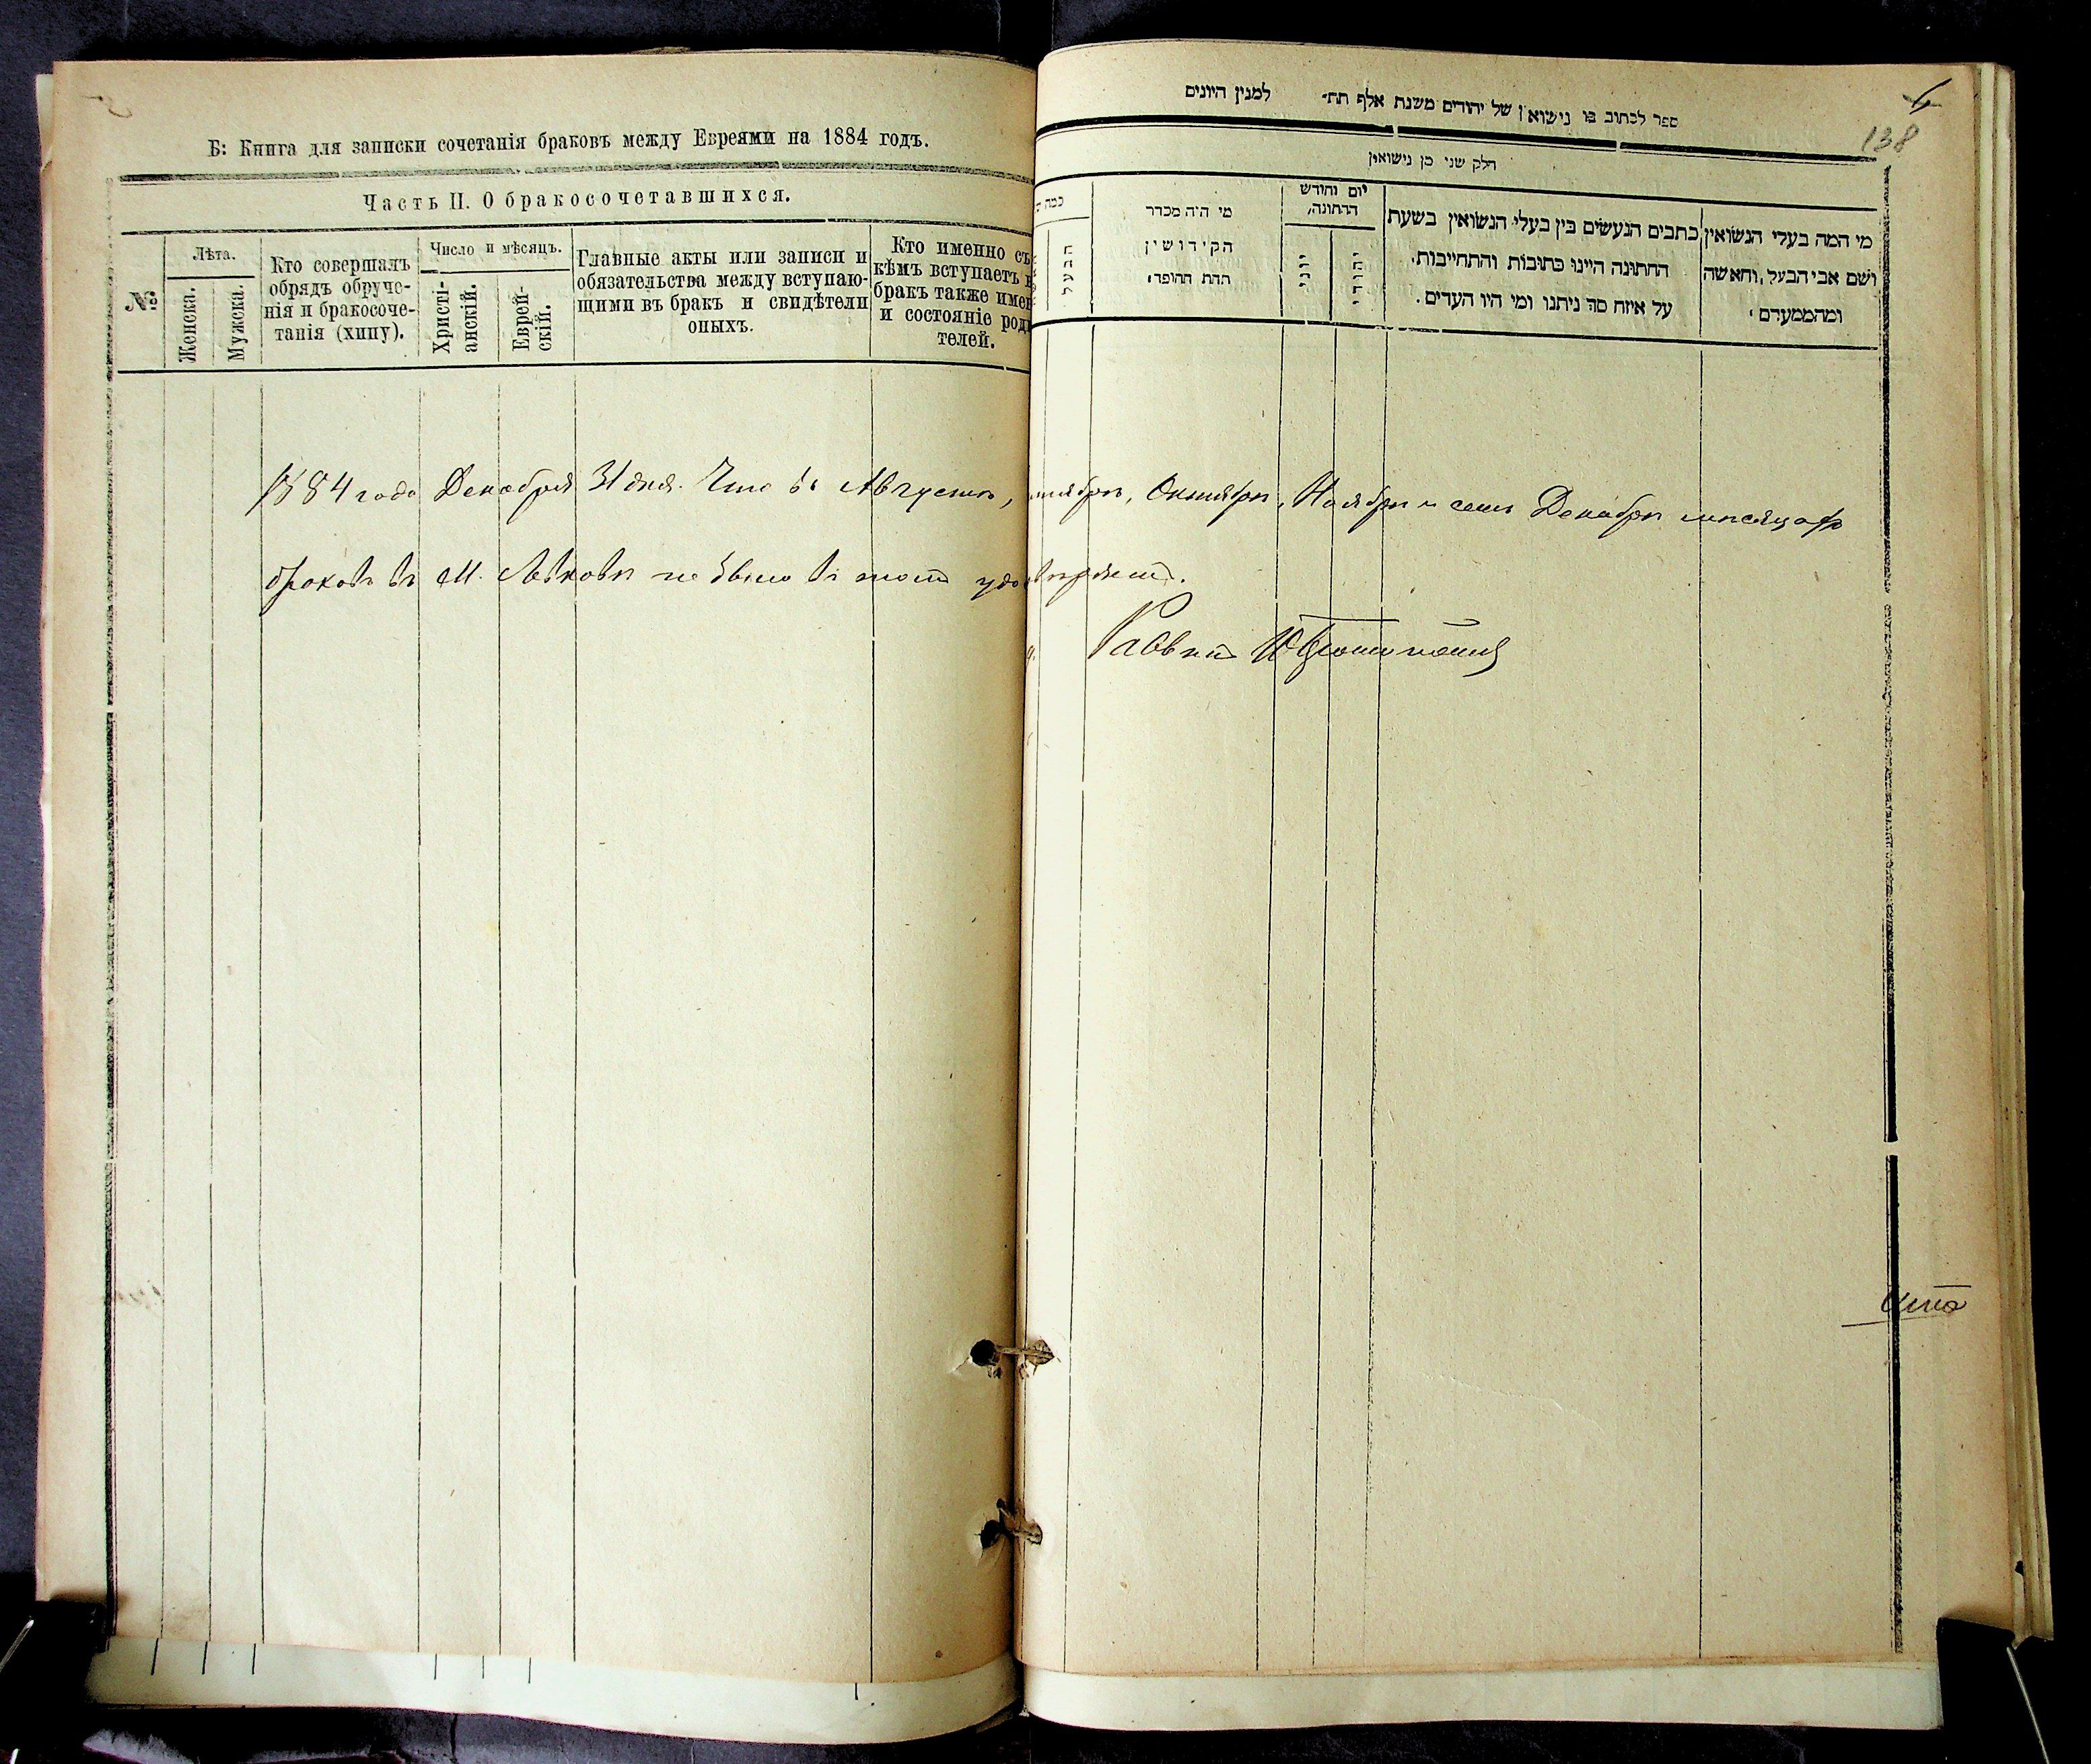 Б: Книга для записки сочетанія браковъ между Евреями на 1884 годъ.
Часть II. О бракосочетавшихся.
№
Лѣта.
Женска.
Мужска.
Кто совершалъ
обрядъ обруче-
нія и бракосоче-
танія (хипу).
Число и мѣсяцъ.
Христі-
анскій.
Еврей-
скій.
Главные акты или записи и
обязательства между вступаю-
щими въ бракъ и свидѣтели
оныхъ.
Кто именно съ
кѣмъ вступаетъ
бракъ также имен
и состояніе роди
телей.
1884 года Декабря 31 дня. Что въ Августѣ, тябрѣ, Октябрѣ, Ноябрѣ и семъ Декабрѣ мѣсяцахъ
браковъ въ М. не было въ томъ удостовѣряетъ.
Раввинъ
6
138
ספר לכתוב בו נישואין של יהודים משנת אלף תת״ למנין היונים
חלק שני מן נישואין
מי המה בעלי הנשואין
ושם אבי הבעל, והאשה
ומהמעמדם
כתבים הנעשים בין בעלי הנשואין בשעת
החתונה היינו כתובות והתחייבות.
על איזה סך ניתנו ומי היו העדים.
יום וחודש
החתונה,
יהודי
יוני
מי היה מסדר
הקידושין
תחת החופה
כמה
הבעל